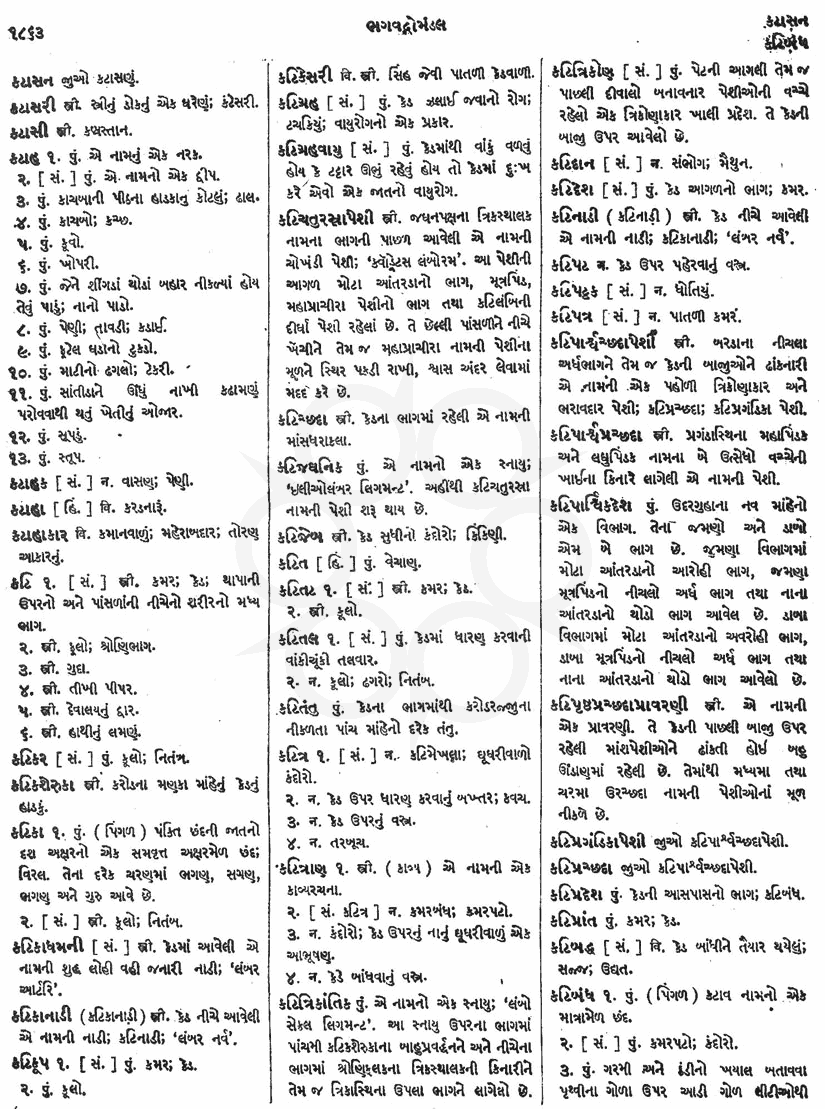 ૧૮૬૩
ભગવદ્ગોમંડલ
કટાસન
કટિબંધ
કટાસન જુઓ કટાસણું.
કટાસરી સ્ત્રી. સ્ત્રીનું ડોકનું એક ઘરેણું; કંટેસરી.
કટાસી સ્ત્રી. કબ્રસ્તાન.
કટાહ ૧. પું. એ નામનું એક નરક.
૨. [ સં. ] પું. એ નામનો એક દ્વીપ.
૩. પું. કાચબાની પીઠના હાડકાનું કોટલું; ઢાલ.
૪. પું. કાચબો; કચ્છ.
૫. પું. કૂવો.
૬. પું. ખોપરી.
૭. પું. જેને શીંગડાં થોડાં બહાર નીકળ્યાં હોય
તેવું પાડું; નાનો પાડો.
૮. પું. પેણી; તાવડી; કડાઈ.
૯. પું. ફૂટેલ ઘડાનો ટુકડો.
૧૦. પું. માટીનો ઢગલો; ટેકરી.
૧૧. પું. સાંતીડાને ઊંધું નાખી કઢામણું
પરોવવાથી થતું ખેતીનું ઓજાર.
૧૨. પું. સૂપડું.
૧૩. પું. સ્તૂપ.
કટાહક [ સં. ] ન. વાસણ; પેણી.
કટાહા [ હિં. ] વિ. કરડનારૂં.
કટાહાકાર વિ. કમાનવાળું; મહેરાબદાર; તોરણ
આકારનું.
કટિ ૧. [ સં. ] સ્ત્રી. કમર; કેડ; થાપાની
ઉપરનો અને પાંસળાંની નીચેનો શરીરનો મધ્ય
ભાગ.
૨. સ્ત્રી. કૂલો; શ્રોણિભાગ.
૩. સ્ત્રી. ગુદા.
૪. સ્ત્રી. તીખી પીપર.
૫. સ્ત્રી. દેવાલયનું દ્વાર.
૬. સ્ત્રી. હાથીનું લમણું.
કટિકર [ સં. ] પું. કૂલો; નિતંબ.
કટિકશેરુકા સ્ત્રી. કરોડના મણકા માંહેનું કેડનું
હાડકું.
કટિકા ૧. પું. ( પિંગળ ) પંક્તિ છંદની જાતનો
દશ અક્ષરનો એક સમવૃત્ત અક્ષરમેળ છંદ;
વિરલ. તેના દરેક ચરણમાં ભગણ, સગણ,
ભગણ અને ગુરુ આવે છે.
૨. [ સં. ] સ્ત્રી. કૂલો; નિતંબ.
કટિકાધમની [ સં. ] સ્ત્રી. કેડમાં આવેલી એ
નામની શુદ્ધ લોહી વહી જનારી નાડી; ‘લંબર
આર્ટરિ’.
કટિકાનાડી (કટિકાનાડી) સ્ત્રી. કેડ નીચે આવેલી
એ નામની નાડી; કટિનાડી; ‘લંબર નર્વ’.
કટિકૂપ ૧. [ સં. ] પું. કમર; કેડ.
૨. પું. કૂલો.
કટિકેસરી વિ. સ્ત્રી. સિંહ જેવી પાતળી કેડવાળી.
કટિગ્રહ [ સં. ] પું. કેડ ઝલાઈ જવાનો રોગ;
ટચકિયું; વાયુરોગનો એક પ્રકાર.
કટિગ્રહવાયુ [ સં. ] પું. કેડમાંથી વાંકું વળવું
હોય કે ટટ્ટાર ઊભું રહેવું હોય તો કેડમાં દુઃખ
કરે એવો એક જાતનો વાયુરોગ.
કટિચતુરસ્રાપેશી સ્ત્રી. જઘનપક્ષના ત્રિકસ્થાલક
નામના ભાગની પાછળ આવેલી એ નામની
ચોખંડી પેશી; ‘ક્વૉડ્રેટસ લંબોરમ’. આ પેશીની
આગળ મોટા આંતરડાનો ભાગ, મૂત્રપિંડ,
મહાપ્રાચીરા પેશીનો ભાગ તથા કટિલંબિની
દીર્ઘા પેશી રહેલાં છે. તે છેલ્લી પાંસળીને નીચે
ખેંચીને તેમ જ મહાપ્રાચીરા નામની પેશીના
મૂળને સ્થિર પકડી રાખી, શ્વાસ અંદર લેવામાં
મદદ કરે છે.
કટિચ્છદા સ્ત્રી. કેડના ભાગમાં રહેલી એ નામની
માંસધરાકલા.
કટિજઘનિક પું. એ નામનો એક સ્નાયુ;
‘ઇલીઓલંબર લિગમેન્ટ’. અહીંથી કટિચતુરસ્રા
નામની પેશી શરૂ થાય છે.
કટિજેબ સ્ત્રી. કેડ સુધીનો કંદોરો; કિંકિણી.
કટિત [ હિં. ] પું. વેચાણ.
કટિતટ ૧. [ સં. ] સ્ત્રી. કમર; કેડ.
૨. સ્ત્રી. કૂલો.
કટિતલ ૧. [ સં. ] પું. કેડમાં ધારણ કરવાની
વાંકીચૂંકી તલવાર.
૨. ન. કૂલો; ઢગરો; નિતંબ.
કટિતંતુ પું. કેડના ભાગમાંથી કરોડરજ્જુના
નીકળતા પાંચ માંહેનો દરેક તંતુ.
કટિત્ર ૧. [ સં. ] ન. કટિમેખલા; ઘૂઘરીવાળો
કંદોરો.
૨. ન. કેડ ઉપર ધારણ કરવાનું બખ્તર; કવચ.
૩. ન. કેડ ઉપરનું વસ્ત્ર.
૪. ન. તરબૂચ.
કટિત્રાણ ૧. સ્ત્રી. ( કાવ્ય ) એ નામની એક
કાવ્યરચના.
૨. [ સં. કટિત્ર ] ન. કમરબંધ; કમરપટો.
૩. ન. કંદોરો; કેડ ઉપરનું નાનું ઘૂઘરીવાળું એક
આભૂષણ.
૪. ન. કેડે બાંધવાનું વસ્ત્ર.
કટિત્રિકાંતિક પું. એ નામનો એક સ્નાયુ; ‘લંબો
સેક્રલ લિગમન્ટ’. આ સ્નાયુ ઉપરના ભાગમાં
પાંચમી કટિકશેરુકાના બાહુપ્રવર્દ્ધનને અને નીચેના
ભાગમાં શ્રોણિફલકના ત્રિકસ્થાલકની કિનારીને
તેમ જ ત્રિકાસ્થિના ઉપલા ભાગને લાગેલો છે.
કટિત્રિકોણ [ સં. ] પું. પેટની આગલી તેમ જ
પાછલી દીવાલો બનાવનાર પેશીઓની વચ્ચે
રહેલો એક ત્રિકોણાકાર ખાલી પ્રદેશ. તે કેડની
બાજુ ઉપર આવેલો છે.
કટિદાન [ સં. ] ન. સંભોગ; મૈથુન.
કટિદેશ [ સં. ] પું. કેડ આગળનો ભાગ; કમર.
કટિનાડી ( કટિનાડી ) સ્ત્રી. કેડ નીચે આવેલી
એ નામની નાડી; કટિકાનાડી; ‘લંબર નર્વ’.
કટિપટ ન. કેડ ઉપર પહેરવાનું વસ્ત્ર.
કટિપટ્ટક [ સં. ] ન. ધોતિયું.
કટિપત્ર [ સં. ] ન. પાતળી કમર.
કટિપાર્શ્વચ્છદાપેશી સ્ત્રી. બરડાના નીચલા
અર્ધભાગને તેમ જ કેડની બાજુઓને ઢાંકનારી
એ નામની એક પહોળી ત્રિકોણાકાર અને
ભરાવદાર પેશી; કટિપ્રચ્છદા; કટિપ્રગંડિકા પેશી.
કટિપાર્શ્વપ્રચ્છદા સ્ત્રી. પ્રગંડાસ્થિના મહાપિંડક
અને લઘુપિંડક નામના બે ઉત્સેધો વચ્ચેની
ખાઈના કિનારે લાગેલી એ નામની પેશી.
કટિપાર્શ્વિકદેશ પું. ઉદરગુહાના નવ માંહેનો
એક વિભાગ. તેના જમણો અને ડાબો
એમ બે ભાગ છે. જમણા વિભાગમાં
મોટા આંતરડાનો આરોહી ભાગ, જમણા
મૂત્રપિંડનો નીચલો અર્ધ ભાગ તથા નાના
આંતરડાનો થોડો ભાગ આવેલ છે. ડાબા
વિભાગમાં મોટા આંતરડાનો અવરોહી ભાગ,
ડાબા મૂત્રપિંડનો નીચલો અર્ધ ભાગ તથા
નાના આંતરડાનો થોડો ભાગ આવેલો છે.
કટિપૃષ્ઠપ્રચ્છદાપ્રાવરણી સ્ત્રી. એ નામની
એક પ્રાવરણી. તે કેડની પાછલી બાજુ ઉપર
રહેલી માંશપેશીઓને ઢાંકતી હોઈ બહુ
ઊંડાણમાં રહેલી છે. તેમાંથી મધ્યમા તથા
ચરમા ઉરચ્છદા નામની પેશીઓનાં મૂળ
નીકળે છે.
કટિપ્રગંડિકાપેશી જુઓ કટિપાર્શ્વચ્છદાપેશી.
કટિપ્રચ્છદા જુઓ કટિપાર્શ્વચ્છદાપેશી.
કટિપ્રદેશ પું. કેડની આસપાસનો ભાગ; કટિબંધ.
કટિપ્રાંત પું. કમર; કેડ.
કટિબદ્ધ [ સં. ] વિ. કેડ બાંધીને તૈયાર થયેલું;
સજ્જ; ઉદ્યત.
કટિબંધ ૧. પું. (પિંગળ ) કટાવ નામનો એક
માત્રામેળ છંદ.
૨. [ સં. ] પું. કમરપટો; કંદોરો.
૩. પું. ગરમી અને ઠંડીનો ખયાલ બતાવવા
પૃથ્વીના ગોળા ઉપર આડી ગોળ લીટીઓથી